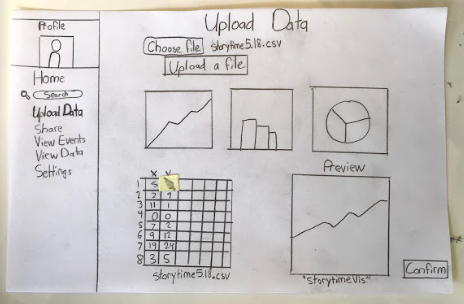 Profile
Home
Search
Upload Data
Share
View Events
View Data
Settings
Upload Data
Choose file storytime5.18.csv
Upload a file
Preview
X Y
1 5
2 2 9
3 11 1
4 0 0
5 7 2
6 9 12
7 19 24
8 3 5
storytime5.18.csv
"storytimeVis"
Confirm